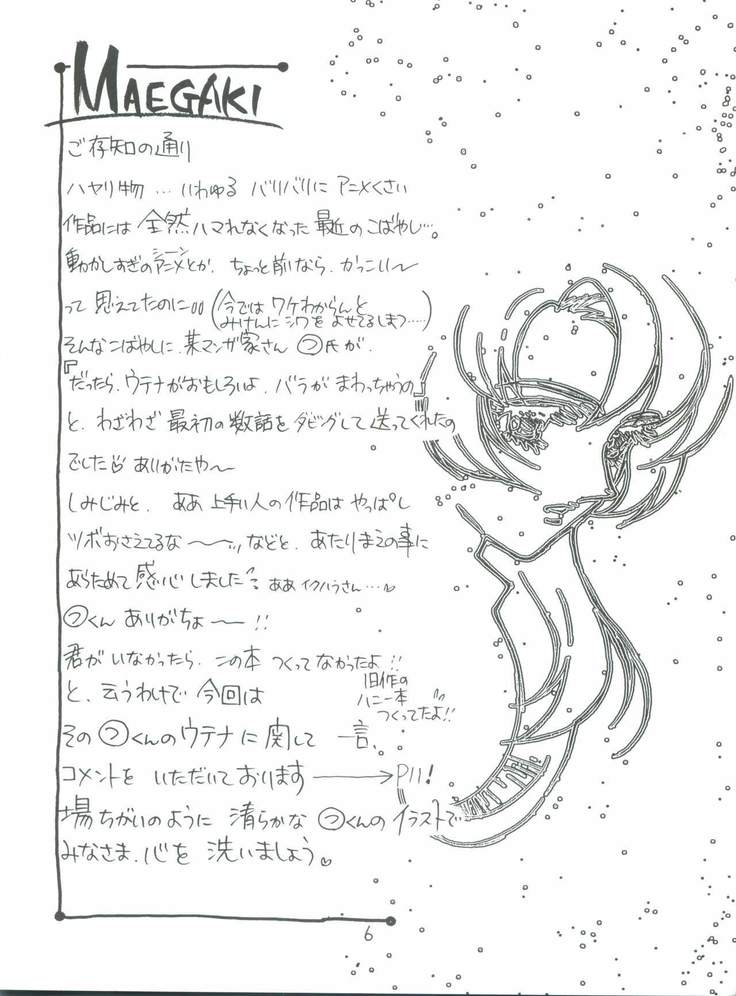 MAEGAKI
ご存知の通り
ハヤリ物…いわゆる バリバリに アニメくさい
作品には 全然 ハマれなくなった 最近の こばやし…
動かしすぎのアニメとか、ちょっと前なら、かっこい〜
シーン
って 思えてたのに(今では ワケわからんと
みけんに シワを よせてるしまつ……)
そんなこばやしに、某マンガ家さん つ氏が、
『だったら、ウテナがおもしろいよ、バラが まわっちゃうの』
と、わざわざ 最初の 数話を ダビングして 送ってくれたの
でした ありがたや〜
しみじみと、ああ 上手い人の作品は やっぱし
ツボおさえてるな〜 などと、あたりまえの事に
あらためて 感心しました ああ イクハラさん…
つくん ありがちょー!!
君が いなかったら、この本 つくってなかったよ!!
旧作の
ハニー本
つくってたよ!!
と、云うわけで 今回は
その つくんのウテナに 関して 一言、
コメントを いただいております → P11!
場ちがいのように 清らかな つくんの イラストで
みなさま、心を 洗いましょう。
6